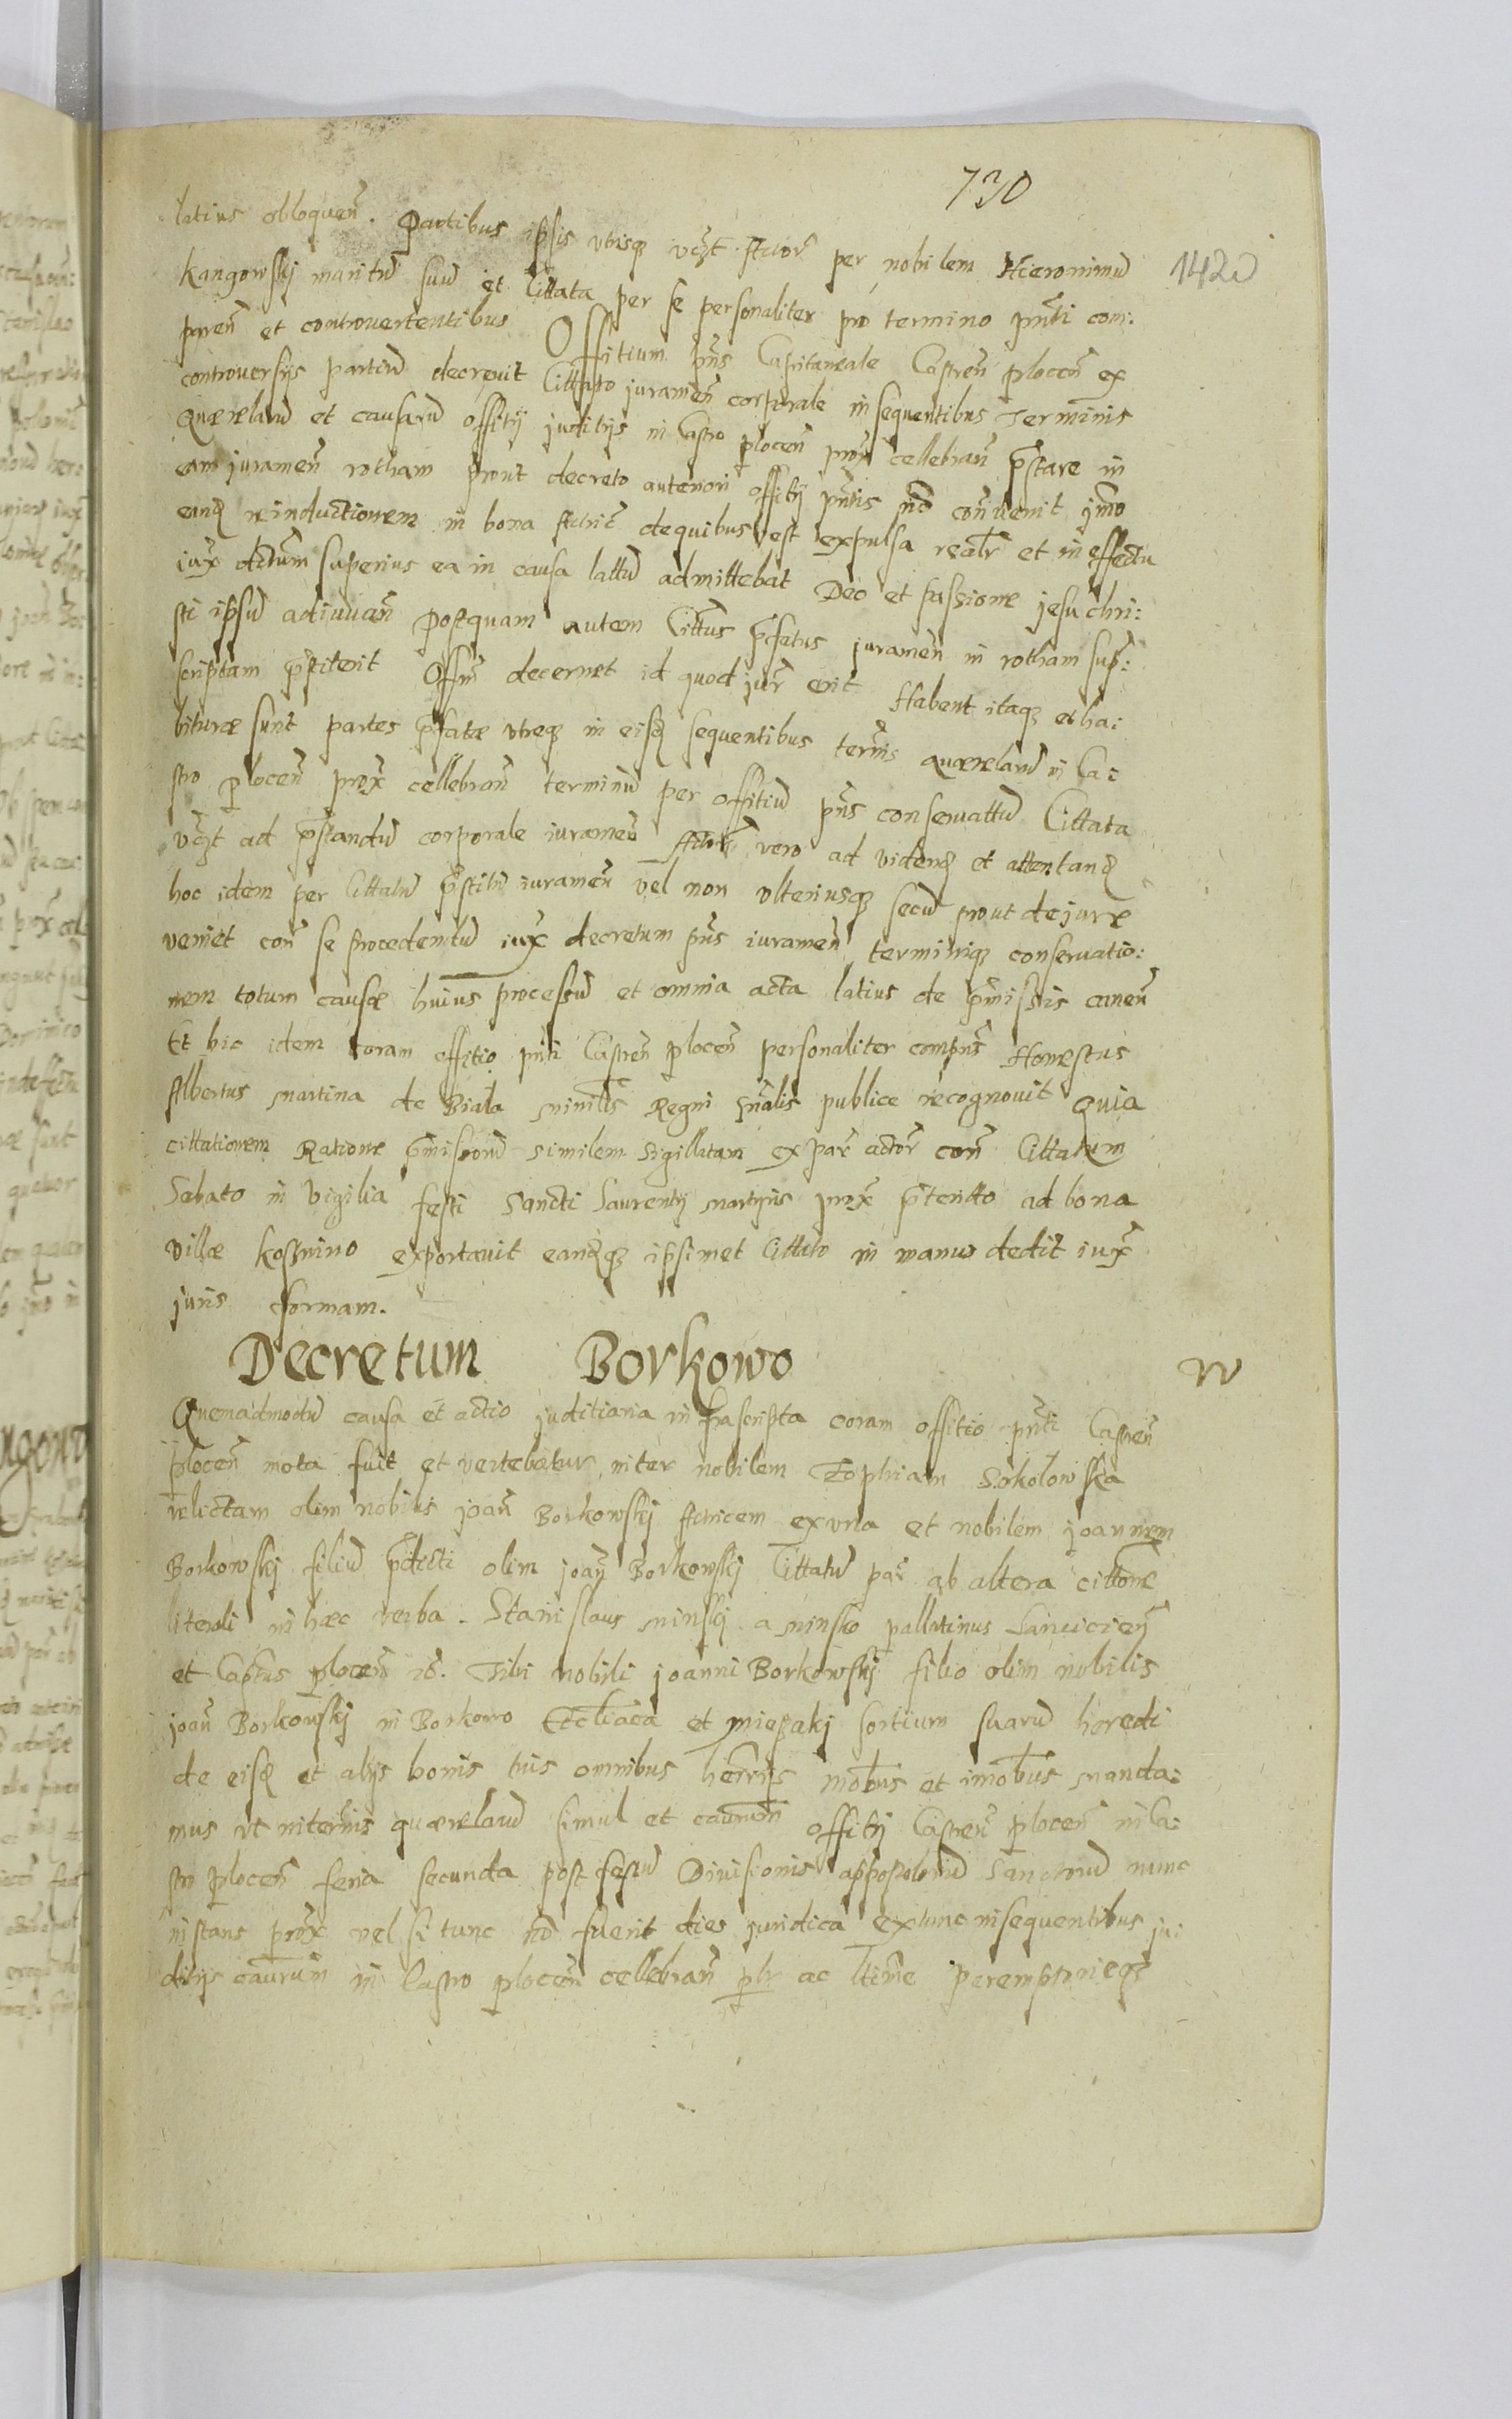 730
1420
latius obloquen̄. Partibus ipsis utrisq̨ vcꝫt Actor̄ per nobilem Hieronimū
Kangowskj maritū suū et Cittata per se personaliter pro termino pn̄ti com:
paren̄ et controvertentibus Offitium pn̄s Capitaneale Castren̄ plocen̄ ex
controversijs partiū decrevit Cittato juramen̄ corporale in sequentibus Terminis
Quærelarū et causarū offitij juditijs in Castro plocen̄ prox̄ cellebran̄ p̄stare in
eam juramen̄ rotham prout decreto anteriori offitij pn̄tis con̄venit jm̄o
eand̨ reinductionem in bona Actric̄ de quibus est expulsa realr̄ et in effectu
iux̄ dictum superius ea in causa lattū admittebat Deo et passione jesu chri:
sti ipsū adiuvan̄ postquam autem Citt̄us p̄fatus juramen̄ in rotham sup̄:
scriptam p̄stiterit Off̄m decernet id quod jur̄ erit Habent itaq̨ et ha:
bituræ sunt partes p̄fatæ utreq̨ in eisd̨ sequentibus ter̄nis quærelarū in Ca:
stro plocen̄ prox̄ cellebran̄ terminū per offitiū pn̄s conservattū Cittata
vcꝫt ad p̄standū corporale iuramen̄ Actor̄ vero ad vidend̨ et attentand̨
hoc idem per Cittatū p̄stitū iuramen̄ vel non ulteriusq̨ secū prout de jure
veniet con̄ se procedendū iux̄ decretum pn̄s iuramen̄ terminiq̨ conservatio:
nem totum causæ huius processū et omnia acta latius de p̄missis canen̄
Et hic idem coram offitio pn̄ti Castren̄ plocen̄ personaliter compn̄s Honestus
Albertus Martina de Biala minil̄is Regni gn̄ralis publice recognovit Quia
cittationem Ratione p̄missorū similem sigillatam ex par̄ actor̄ con̄ Cittatum
Sabato in Vigilia festi Sancti Laurentij martyris prox̄ p̄teritto ad bona
villæ Kossnino exportavit eandq̨ ipsimet Cittato in manus dedit iux̄
juris formam.
Decretum Borkowo
Quemadmodū causa et actio juditiaria infrascripta coram offitio pn̄ti Castren̄
plocen̄ mota fuit et vertebatur inter nobilem Zophiam Sokolowska
relictam olim nobilis joan̄ Borkowskj Actricem ex una et nobilem joannem
Borkowskj filiū p̄dicti olim joan̄ Borkowskj Cittatū par̄ ab altera citt̄one
literali in hæc verba. Stanislaus Minskj a Minsko pallatinus Lanciciēn
et Capt̄us plocen̄ . Tibi nobili joanni Borkowskj filio olim nobilis
joan̄ Borkowskj in Borkowo et miezakj sortium suarū heredi
de eisd̨ et alijs bonis tuis omnibus her̄rijs mob̄us et imob̄us manda:
mus ut in ter̄nis quærelarū simul et offitij Castren̄ plocen̄ in Ca:
stro plocen̄ feria secunda post festū Divisionis appostolorū Sanctorū nunc
instans prox̄ vel si tunc nō fuerit dies juridica extunc in sequentibus ju:
ditijs caūrum in Castro plocen̄ cellebran̄ plr̄ ac ltīme peremptorieq̨